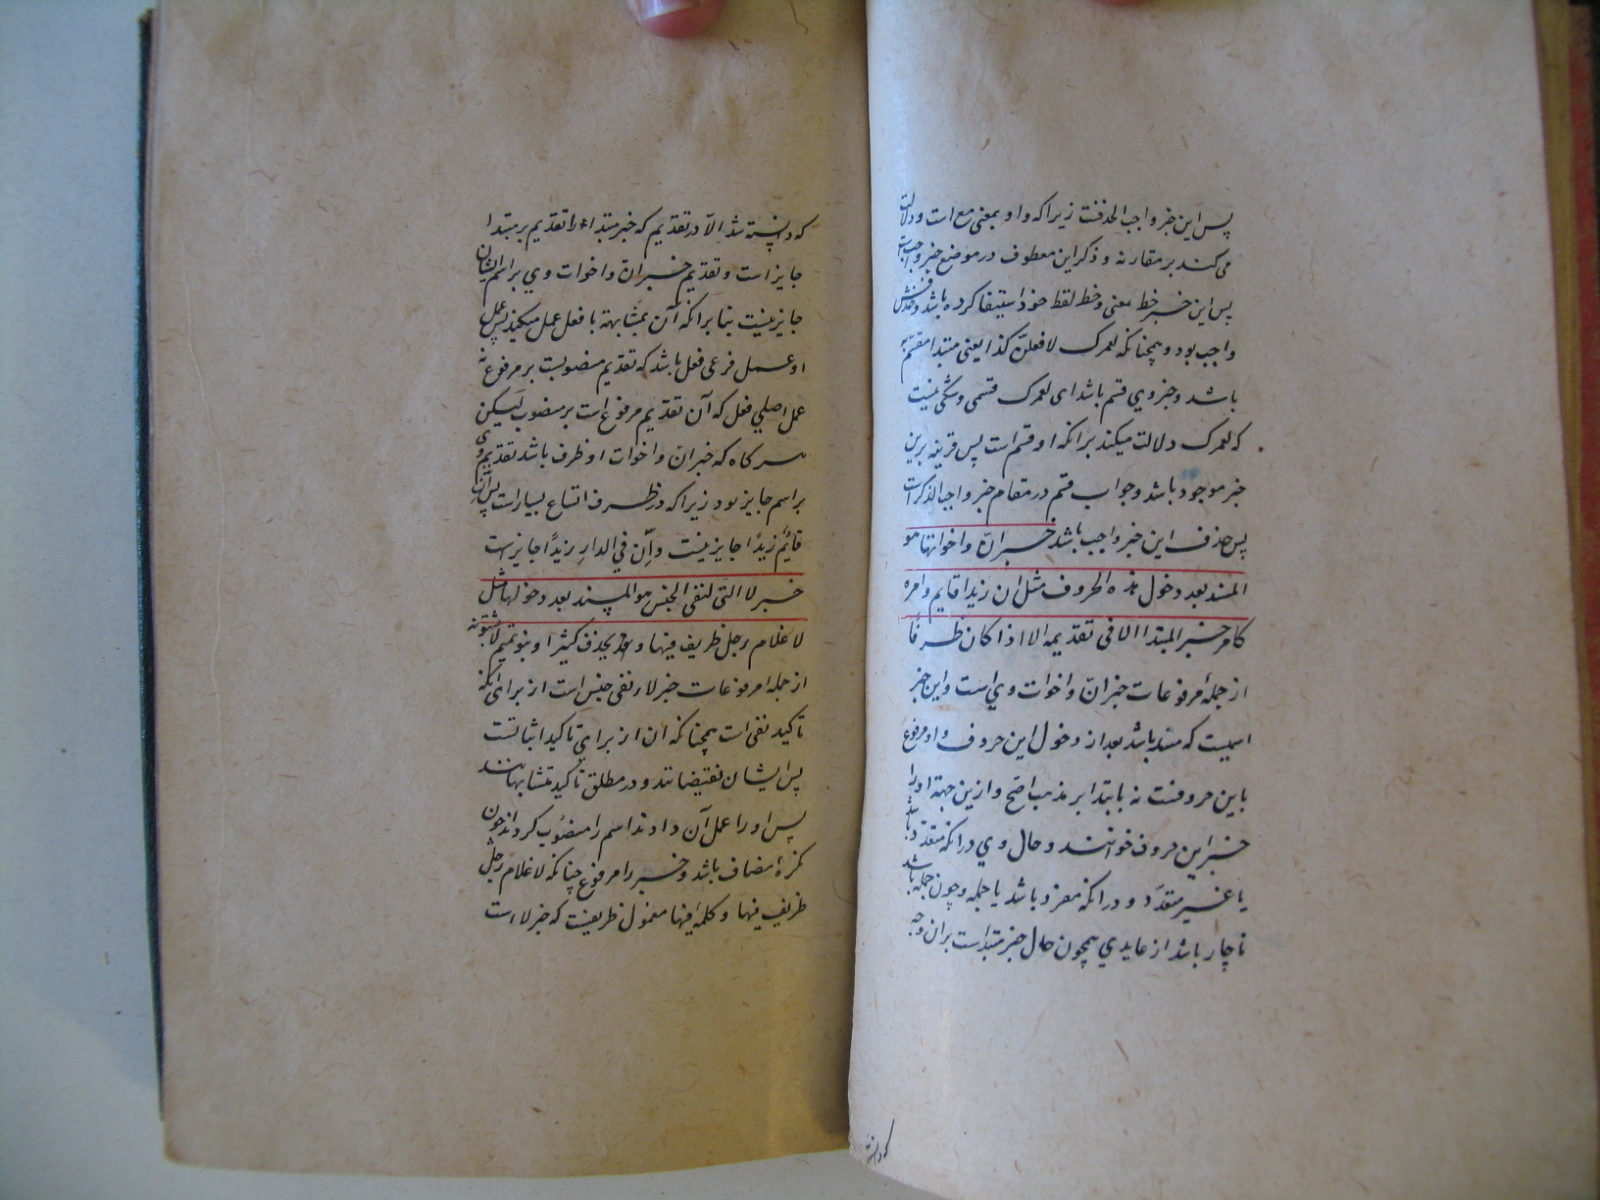 پس این خبر واجب الحذفست زیرا که واو بمعنی مع است و دلالت
می کند بر مقارنه و ذکر این معطوف در موضع خبر واجبست
پس این خبر خط معنی و خط لفظ خود استیفا کرده باشد و حذفش
واجب بود و همچنانکه لعمرک لافعلن کذا یعنی مبتدا مقسم به
باشد و خبر وی قسم باشد ای لعمرک قسمی و شکی نیست
که لعمرک دلالت میکند برانکه او قسم است پس قرینه برین
خبر موجود باشد و جواب قسم در مقام خبر واجب الذکر است
پس حذف این خبر واجب باشد خبر انّ واخواتها هو
المسند بعد دخول هذه الحروف مثل ان زیدا قایم وامره
کامر خبر المبتدا الا فی تقدیمه الا اذا کان ظرفا
از جملهٔ مرفوعات خبر انّ و اخوات وی است و این خبر
اسمیست که مسند باشد بعد از دخول این حروف و او مرفوع
باین حروفست نه بابتدا بر مذهب اصح و ازین جهة او را
خبر این حروف خوانند و حال وی در انکه متعدد باشد
یا غیر متعدد و در انکه مفرد باشد یا جمله و چون جمله باشد
ناچار باشد از عایدی همچون حال خبر مبتداست بران وجه
که دانسته
که دانسته شد الّا در تقدیم که خبر مبتدا را تقدیم بر مبتدا
جایز است و تقدیم خبر انّ و اخوات وی بر اسم ایشان
جایز نیست بنا برانکه آن بمشابهة با فعل عمل میکند پس عمل
او عمل فرعی فعل باشد که تقدیم منصوبست بر مرفوع نه
عمل اصلی فعل که آن تقدیم مرفوع است بر منصوب لیکن
هر کاه که خبر انّ و اخوات او ظرف باشد تقدیم وی
بر اسم جایز بود زیرا که در ظرف اتساع بسیار است پس ان
قائم زیدًا جایز نیست و اِنّ في الدارِ زیدًا جایز است
خبر لا التی لنفی الجنس هو المسند بعد دخولها مثل
لا غلام رجل ظریف فیها و یحذف کثیرا و بنو تمیم لا یثبتونه
از جمله مرفوعات خبر لاء نفی جنس است از برای انکه
تاکید نفی است همچنانکه ان از برای تاکید اثباتست
پس ایشان نقیضانند و در مطلق تاکید متشابهانند
پس او را عمل آن دادند اسم را منصُوب کردند چون
نکرهٔ مضاف باشد و خبر را مرفوع چنانکه لا غلام رجل
ظریف فیها و کلمهٔ فیها معمول ظریفست که خبر لا است